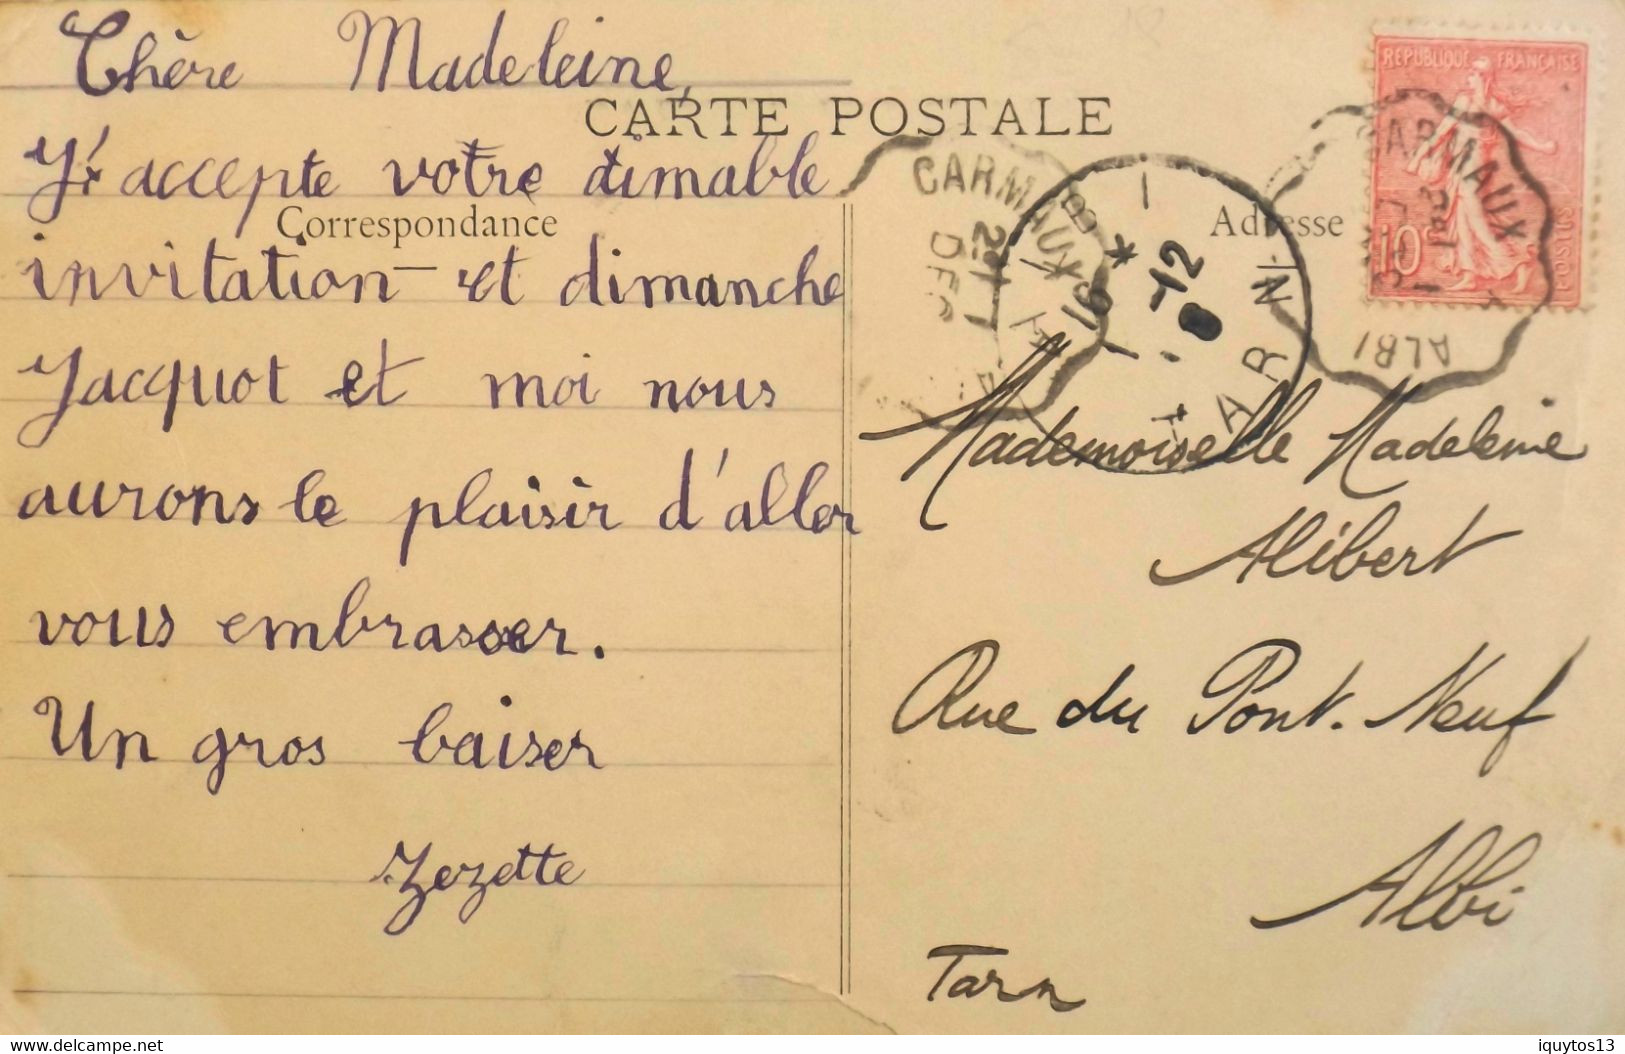 Chère Madeleine,
CARTE POSTALE
J'accepte votre aimable
Correspondance
invitation et dimanche
Jacquot et moi nous
aurons le plaisir d'aller
vous embrasser.
Un gros baiser
Zezette
Adresse
REPUBLIQUE FRANÇAISE
10c
POSTES
CARMAUX
ALBI
CARMAUX
DEC
16
1 -12
TARN
Mademoiselle Madeleine
Alibert
Rue du Pont-Neuf
Albi
Tarn
delcampe.net
iquytos13